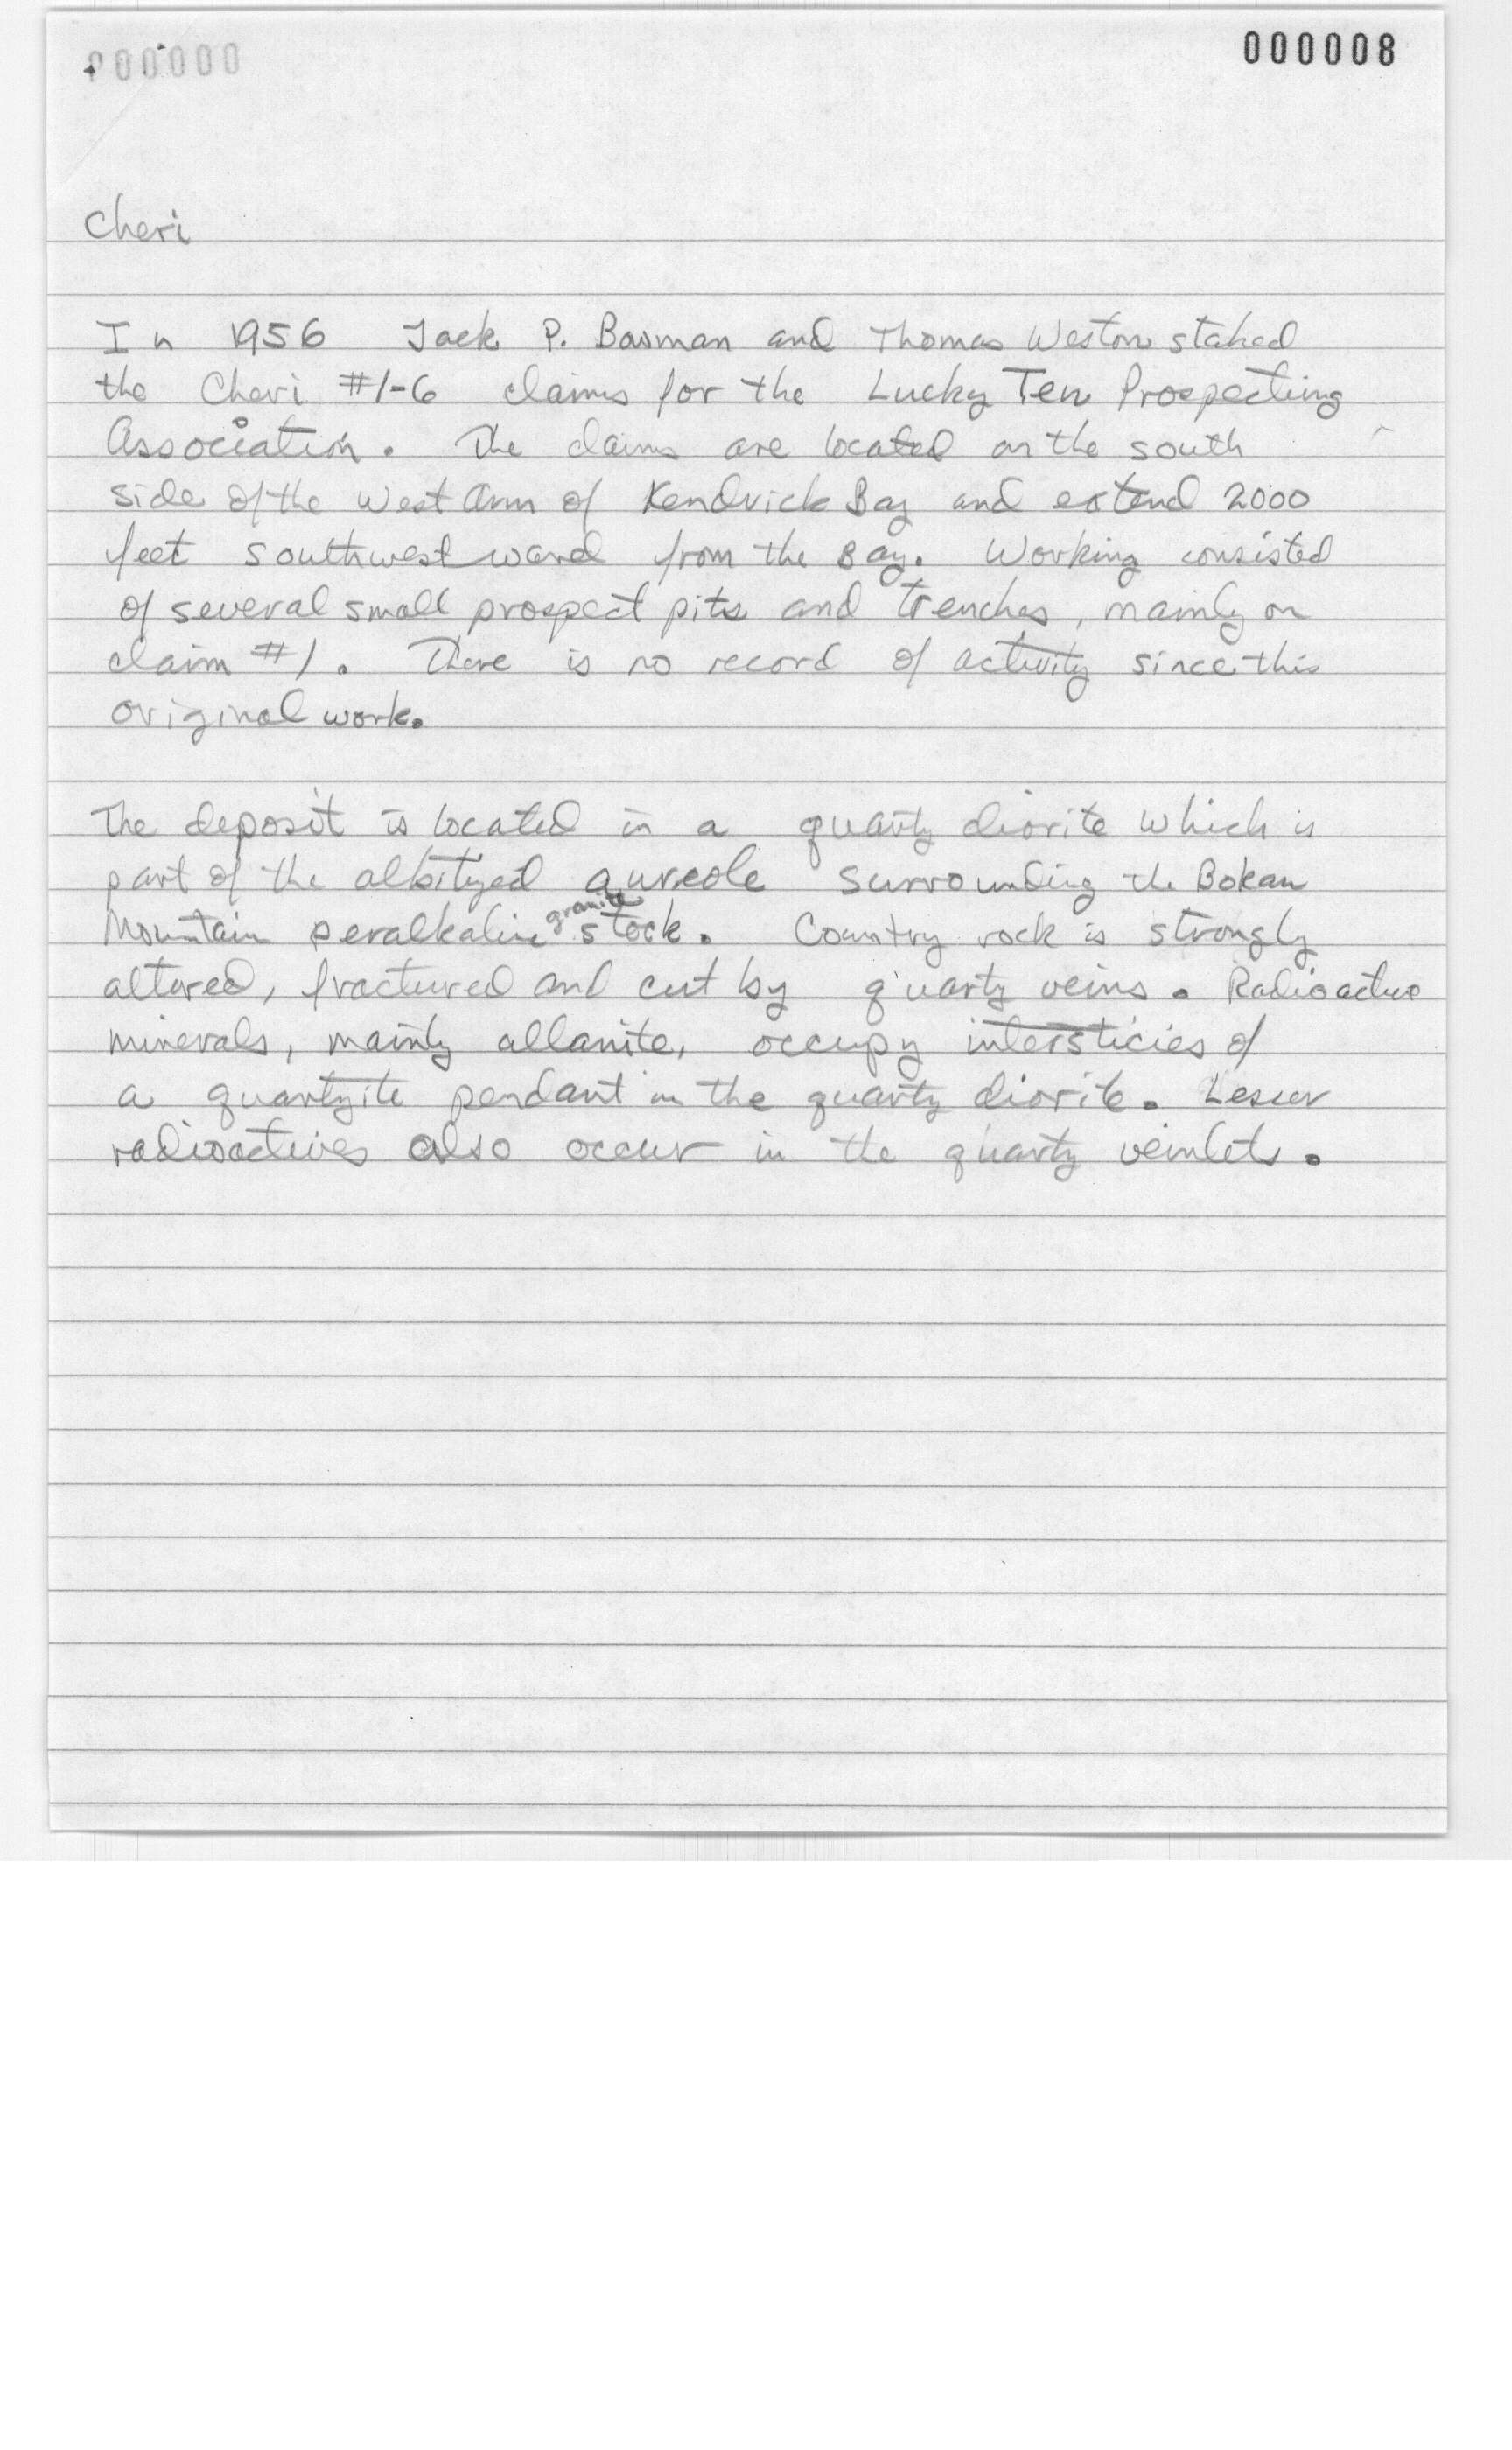 000000
000008
Cheri
In 1956 Jack P. Bowman and Thomas Weston staked
the Cheri #1-6 claims for the Lucky Ten Prospecting
Association. The claims are located on the south
side of the West Arm of Kendrick Bay and extend 2000
feet southwestward from the Bay. Working consisted
of several small prospect pits and trenches, mainly on
claim #1. There is no record of activity since this
original work.
The deposit is located in a quartz diorite which is
part of the albitized aureole surrounding the Bokan
Mountain peralkaline granite stock. Country rock is strongly
altered, fractured and cut by quartz veins. Radioactive
minerals, mainly allanite, occupy intersticies of
a quartzite pendant in the quartz diorite. Lesser
radioactives also occur in the quartz veinlets.